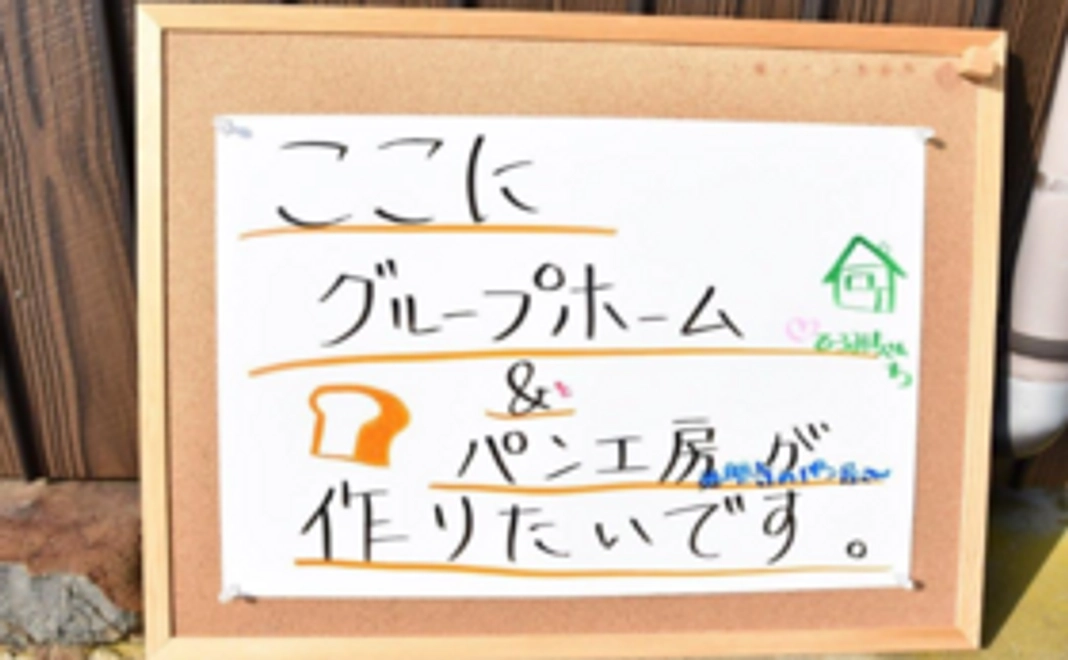 ここに
グループホーム
&
パン工房が
作りたいです。